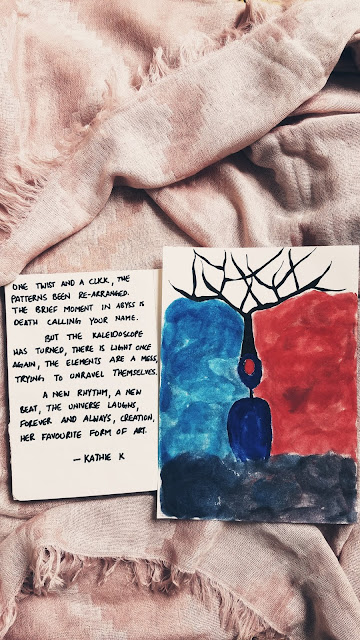 ONE TWIST AND A CLICK, THE
PATTERNS BEEN RE-ARRANGED.
THE BRIEF MOMENT IN ABYSS IS
DEATH CALLING YOUR NAME.
BUT THE KALEIDOSCOPE
HAS TURNED, THERE IS LIGHT ONCE
AGAIN, THE ELEMENTS ARE A MESS,
TRYING TO UNRAVEL THEMSELVES.
A NEW RHYTHM, A NEW
BEAT, THE UNIVERSE LAUGHS,
FOREVER AND ALWAYS, CREATION,
HER FAVOURITE FORM OF ART.
— KATHIE K